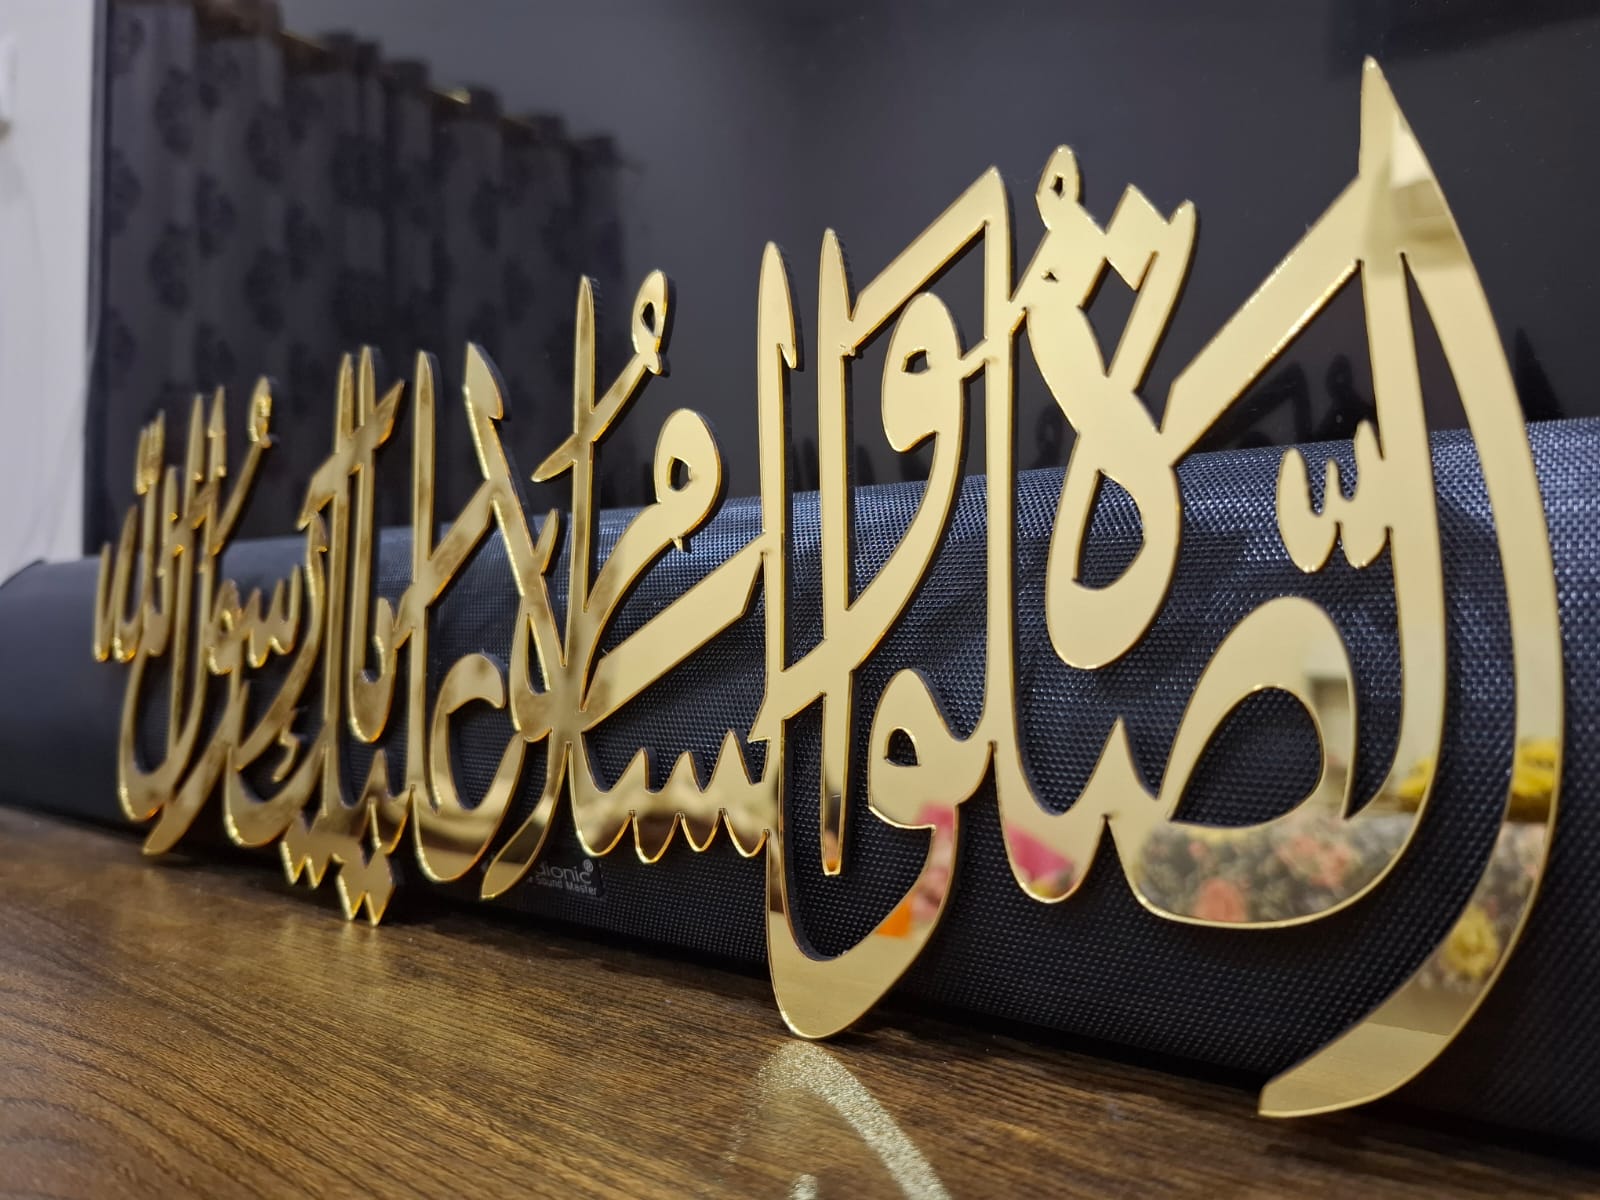 الصَّلٰوةُ وَالسَّلَامُ عَلَيْكَ يَا رَسُولَ اللّٰه
dionic®
Sound Master